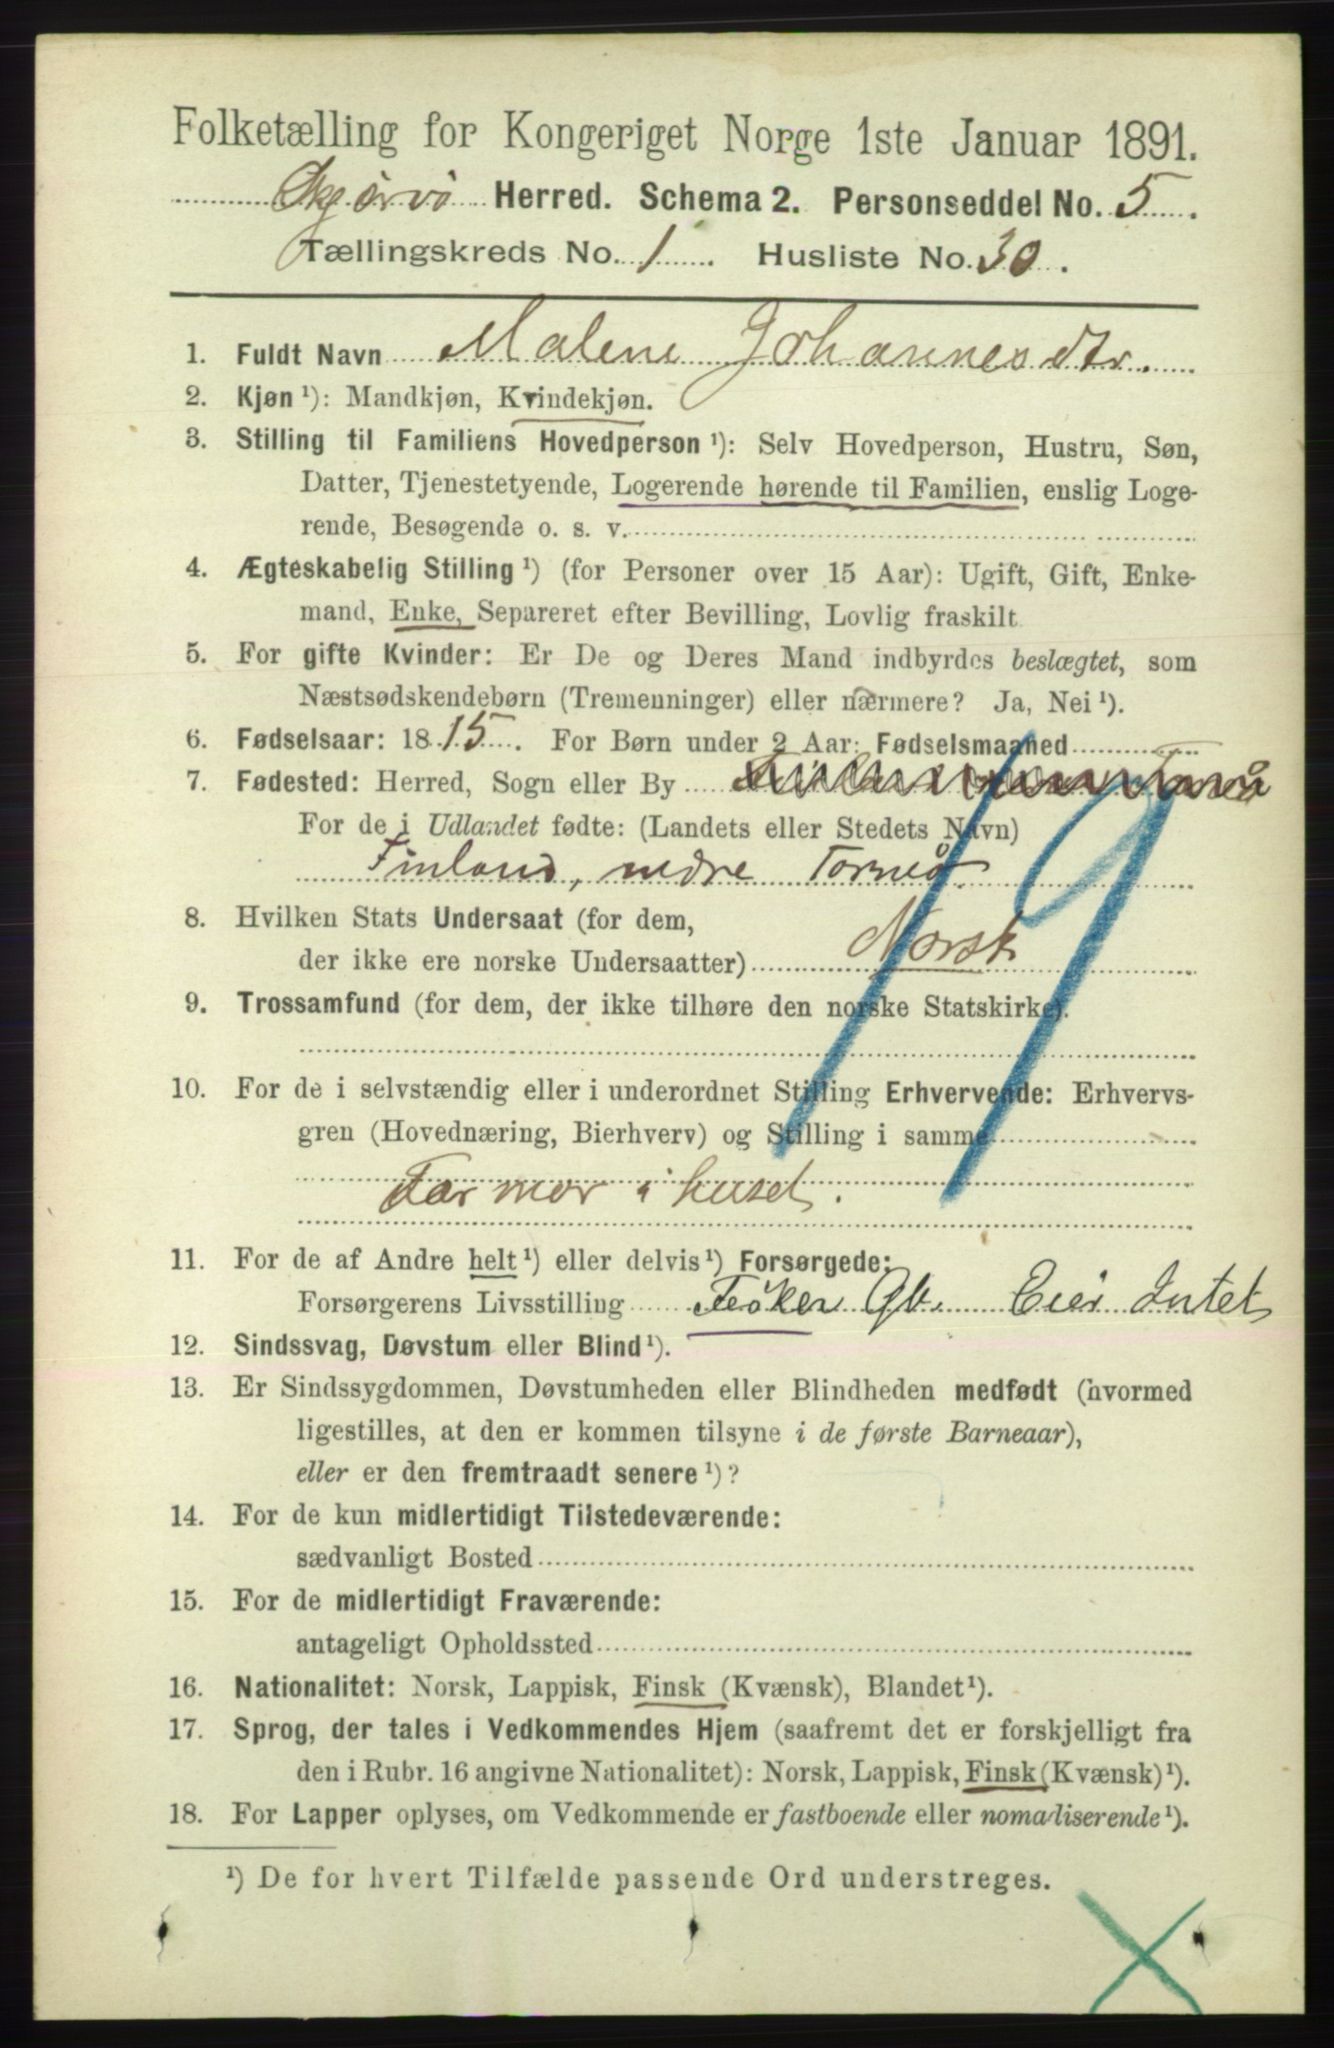 Folketælling for Kongeriget Norge 1ste Januar 1891.
Skjervö Herred. Schema 2. Personseddel No. 5.
Tællingskreds No. 1. Husliste No. 30.
1. Fuldt Navn Malene Johannesdtr.
2. Kjøn ¹): Mandkjøn, Kvindekjøn.
3. Stilling til Familiens Hovedperson ¹): Selv Hovedperson, Hustru, Søn,
Datter, Tjenestetyende, Logerende hørende til Familien, enslig Loge-
rende, Besøgende o. s. v.
4. Ægteskabelig Stilling ¹) (for Personer over 15 Aar): Ugift, Gift, Enke-
mand, Enke, Separeret efter Bevilling, Lovlig fraskilt
5. For gifte Kvinder: Er De og Deres Mand indbyrdes beslægtet, som
Næstsødskendebørn (Tremenninger) eller nærmere? Ja, Nei ¹).
6. Fødselsaar: 1815. For Børn under 2 Aar: Fødselsmaaned
7. Fødested: Herred, Sogn eller By
For de i Udlandet fødte: (Landets eller Stedets Navn)
Finland, nedre Torneå.
8. Hvilken Stats Undersaat (for dem,
der ikke ere norske Undersaatter) Norsk
9. Trossamfund (for dem, der ikke tilhøre den norske Statskirke).
10. For de i selvstændig eller i underordnet Stilling Erhvervende: Erhvervs-
gren (Hovednæring, Bierhverv) og Stilling i samme
Farmor i huset.
19
11. For de af Andre helt ¹) eller delvis ¹) Forsørgede:
Forsørgerens Livsstilling Fisker Gb. Eier Intet
12. Sindssvag, Døvstum eller Blind ¹).
13. Er Sindssygdommen, Døvstumheden eller Blindheden medfødt (hvormed
ligestilles, at den er kommen tilsyne i de første Barneaar),
eller er den fremtraadt senere ¹)?
14. For de kun midlertidigt Tilstedeværende:
sædvanligt Bosted
15. For de midlertidigt Fraværende:
antageligt Opholdssted
16. Nationalitet: Norsk, Lappisk, Finsk (Kvænsk), Blandet ¹).
17. Sprog, der tales i Vedkommendes Hjem (saafremt det er forskjelligt fra
den i Rubr. 16 angivne Nationalitet): Norsk, Lappisk, Finsk (Kvænsk) ¹).
18. For Lapper oplyses, om Vedkommende er fastboende eller nomadiserende ¹).
¹) De for hvert Tilfælde passende Ord understreges.